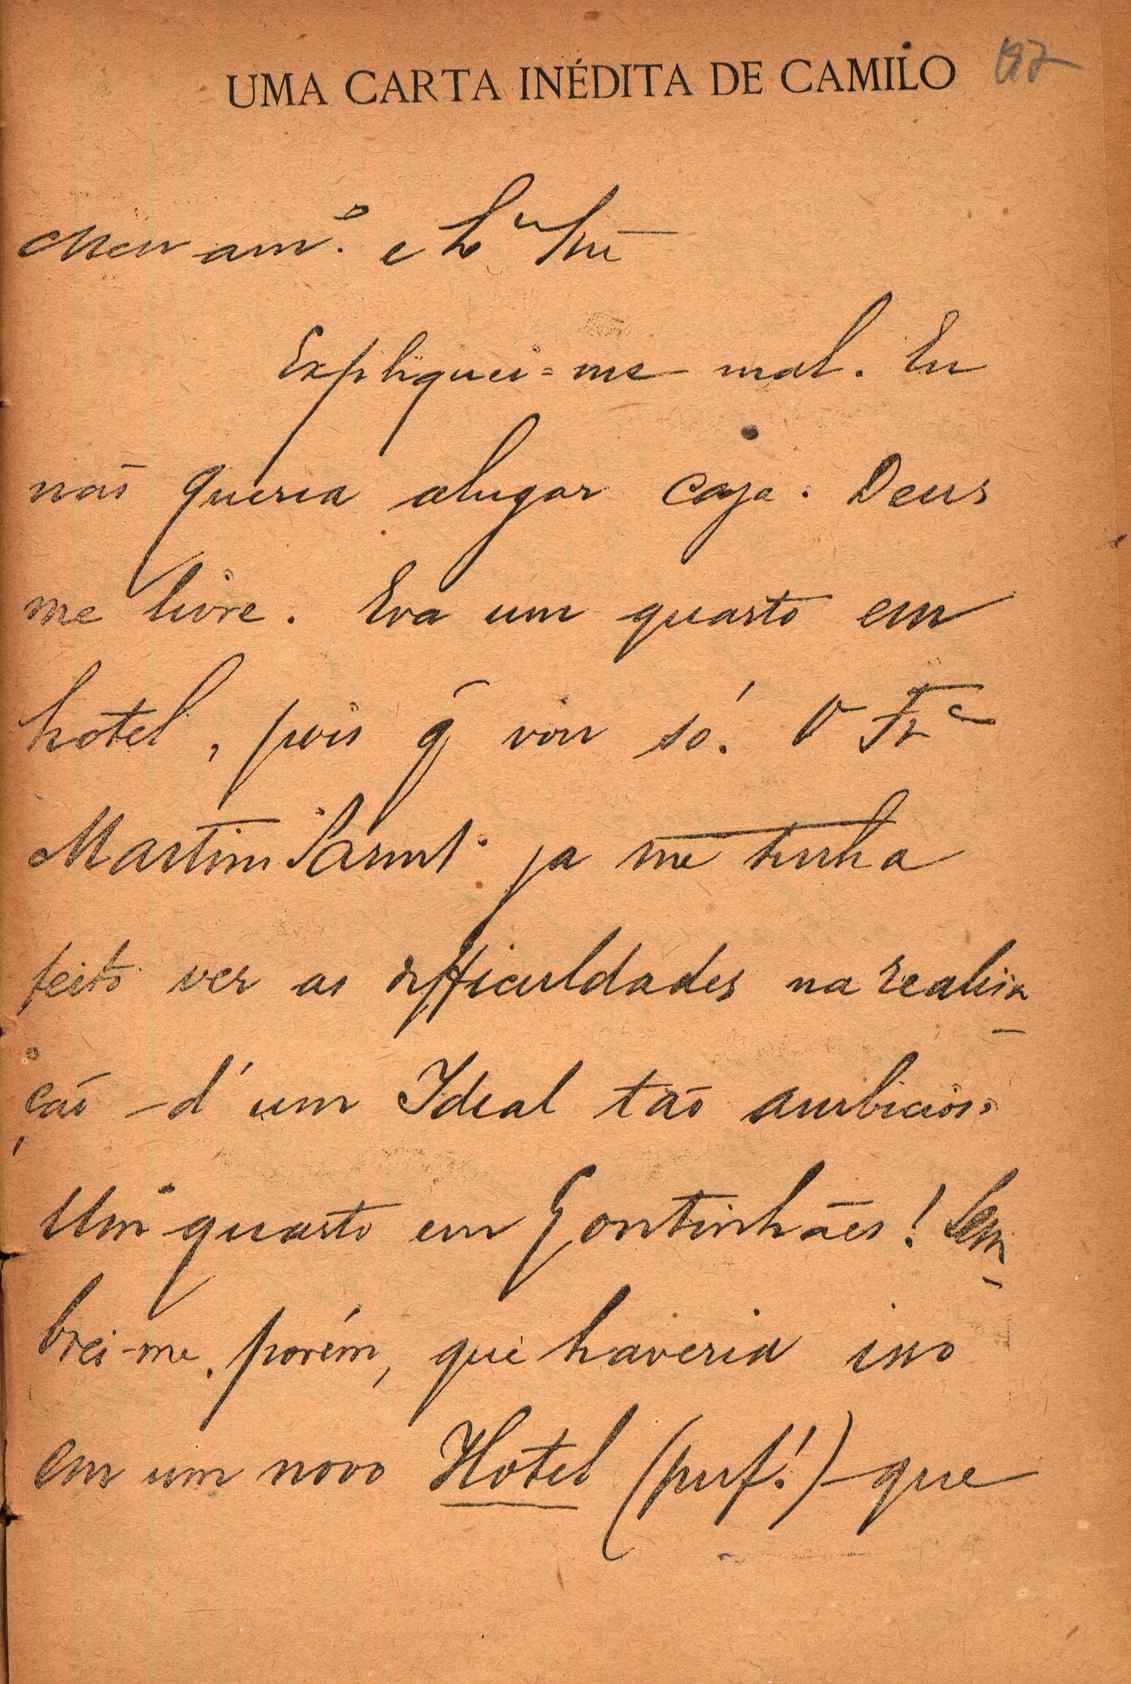 UMA CARTA INÉDITA DE CAMILO
Meu am.º e
Expliquei=me mal. Eu
não queria alugar casa. Deus
me livre. Era um quarto em
hotel, pois q̃ vou só. O Frc
Martins Sarmt.º ja me tinha
feito ver as difficuldades na realisa
ção d'um Ideal tão ambicioso.
Um quarto em Gontinhães! Lem
brei-me, porém, que haveria isso
em um novo Hotel (puf!) que